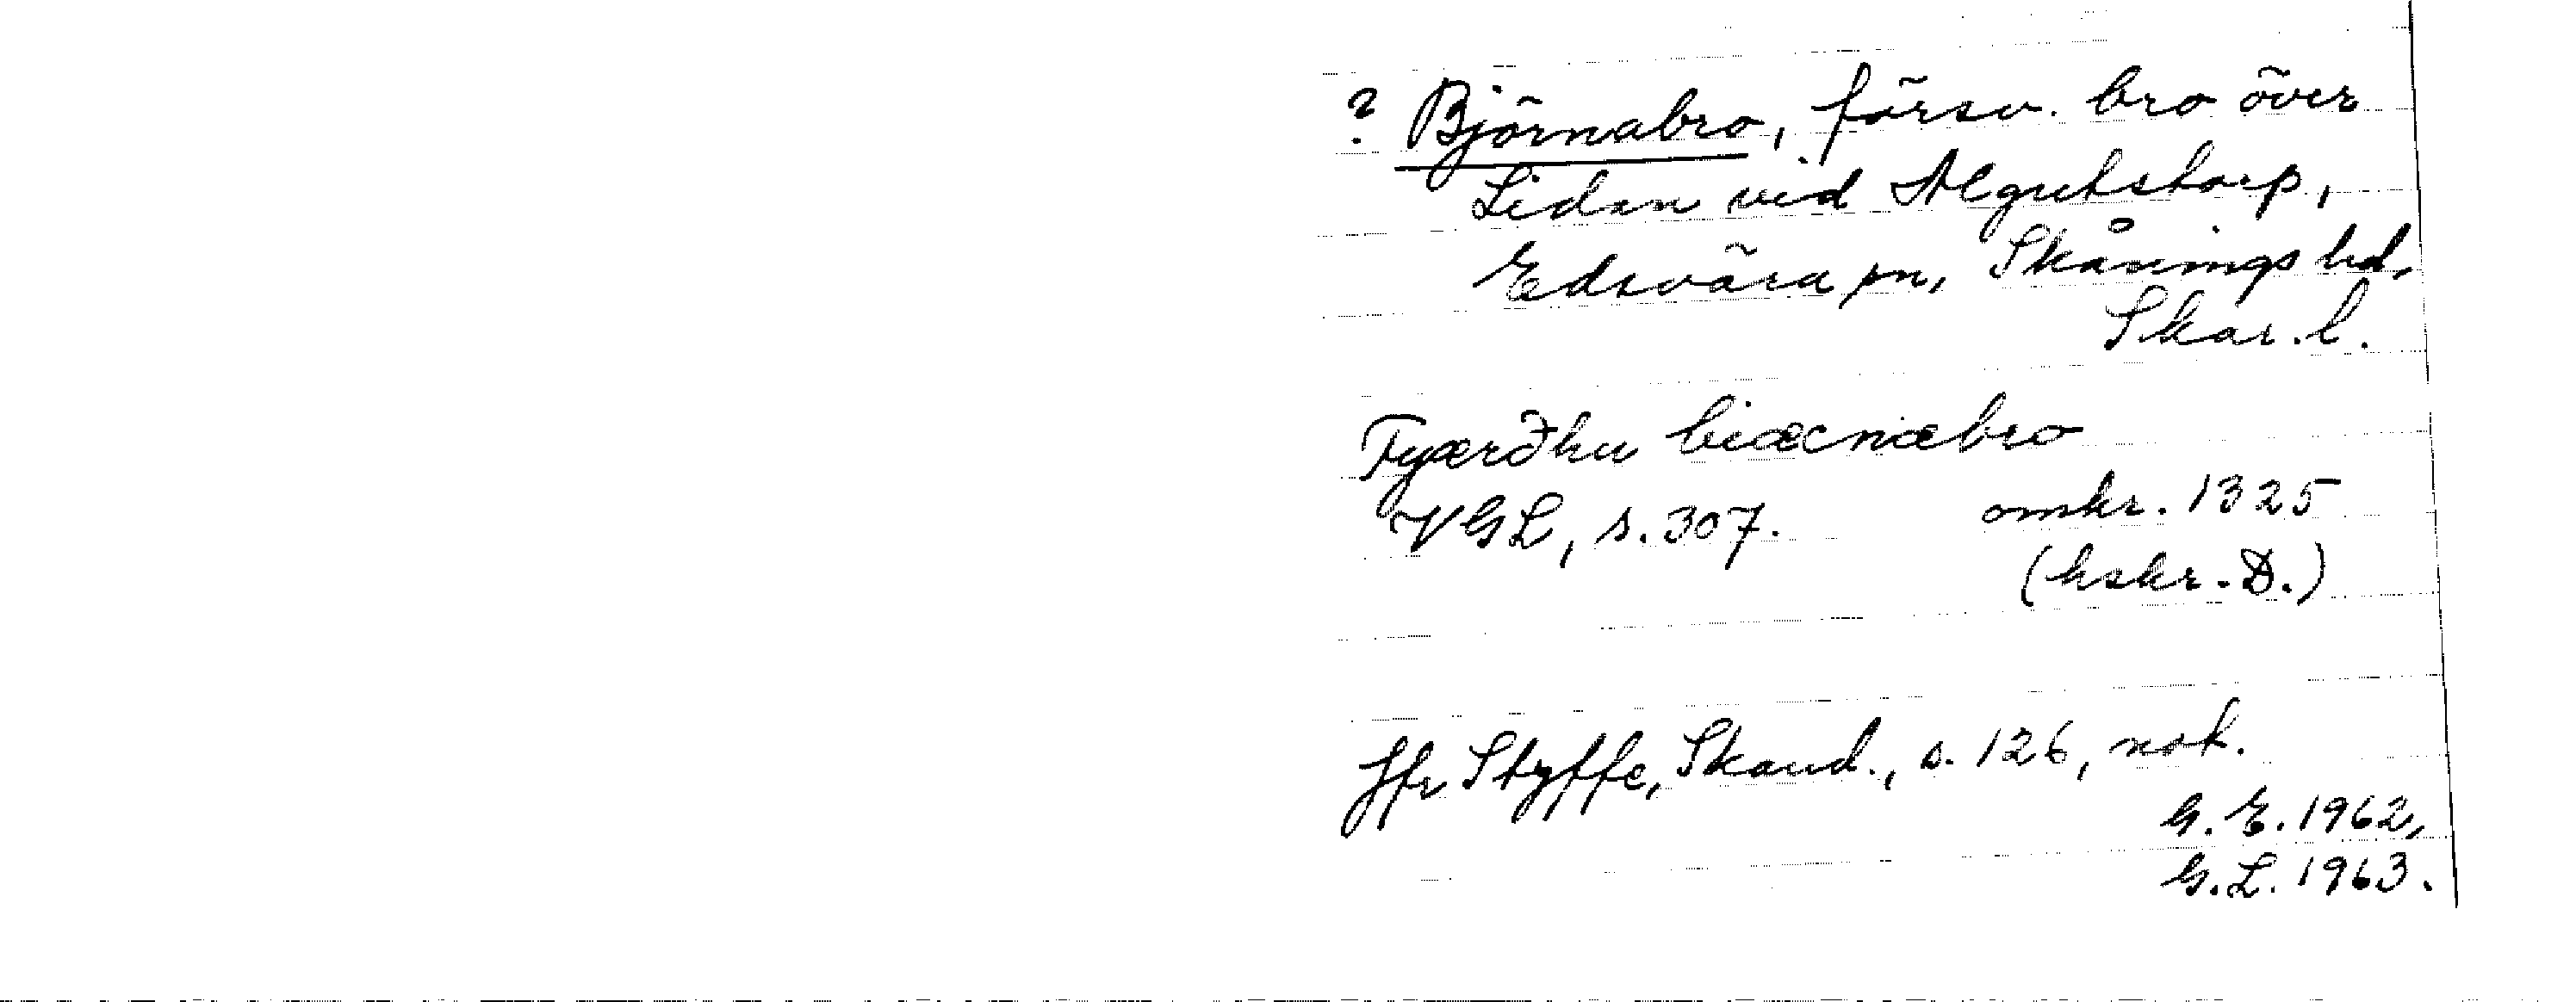 ? Björnabro, försv. bro över
Lidan vid Algutstorp,
Edsvära sn, Skånings hd,
Skar. l.
Fyærðhu biæcnæbro
VGL, s. 307. omkr. 1325
(hskr. D.)
Jfr Styffe, Skand., s. 126, not.
G. E. 1962,
G. L. 1963.